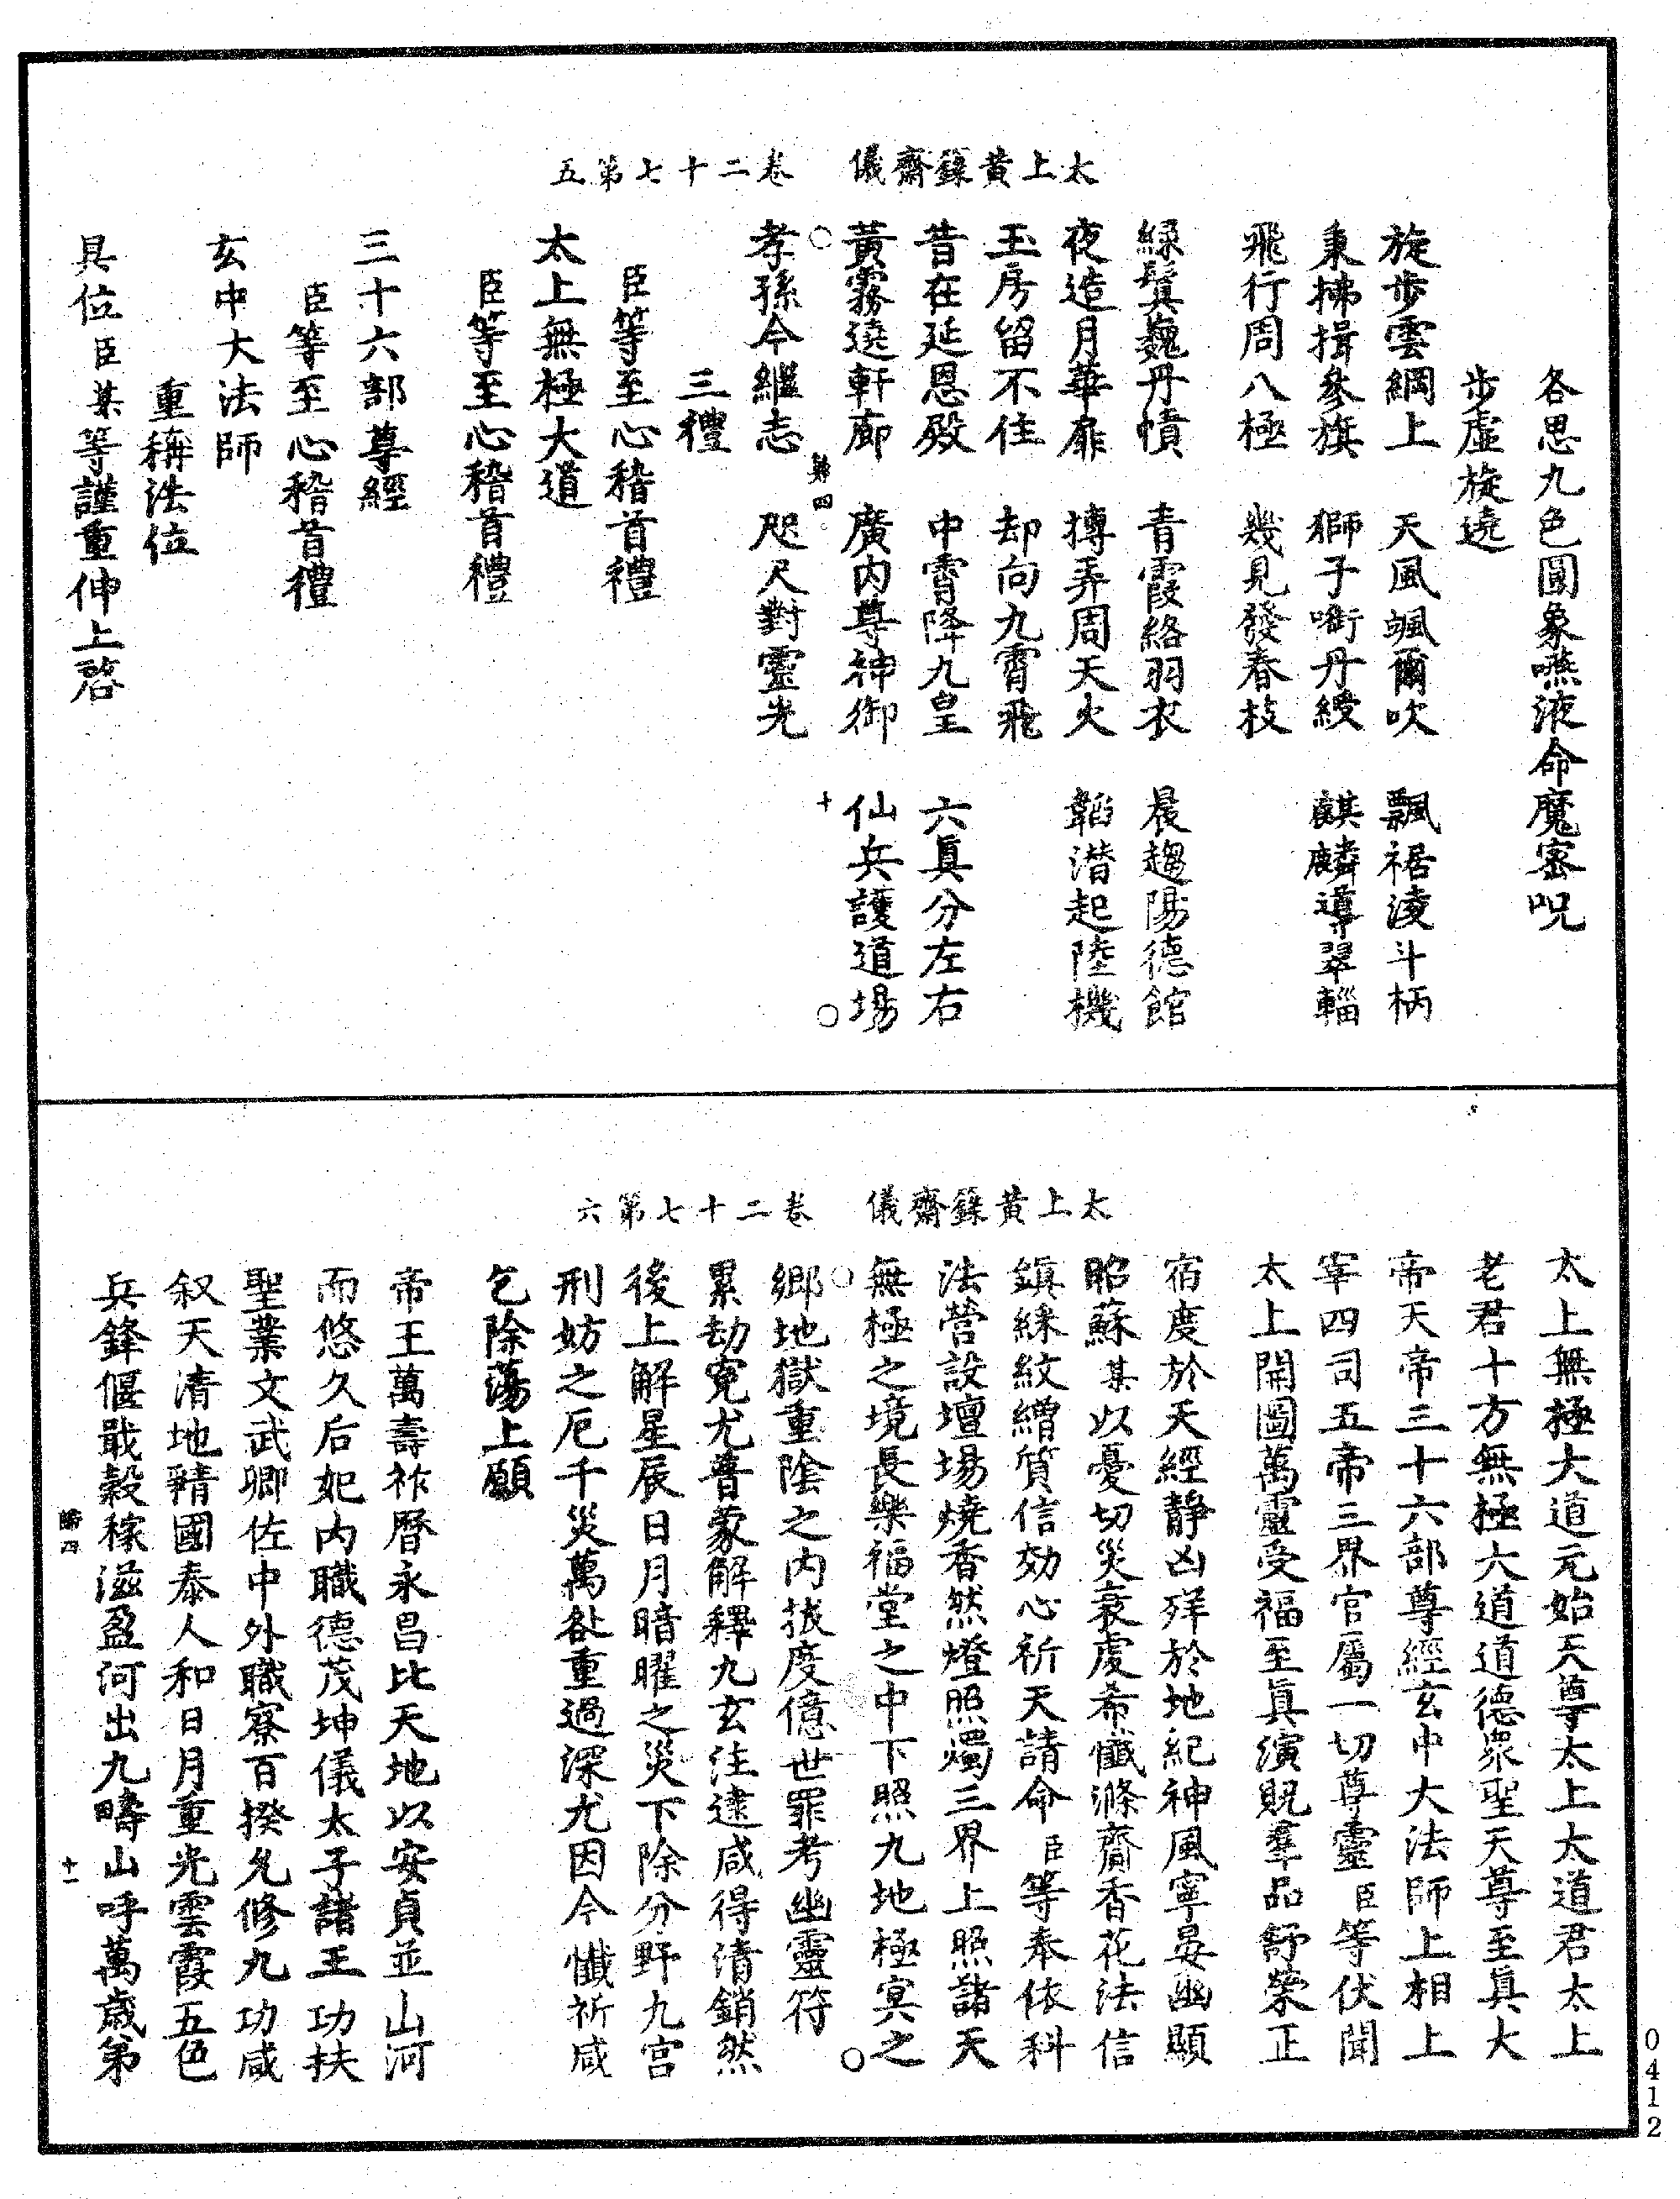 太上黃籙齋儀　卷二十七第五
各思九色圓象嚥液命魔密呪
步虛旋遶
旋步雲綱上　天風颯爾吹　飄裾淩斗柄
秉拂揖參旗　獅子嘶丹綬　麒麟導翠輜
飛行周八極　幾見發春枝
綠鬢巍丹幘　青霞絡羽衣　晨趨陽德館
夜造月華扉　摶弄周天火　韜潛起陸機
玉房留不住　却向九霄飛
昔在延恩殿　中霄降九皇　六眞分左右
黃霧遶軒廊　廣內尊神御　仙兵護道場
孝孫今繼志　咫尺對靈光
三禮
臣等至心稽首禮
太上無極大道
臣等至心稽首禮
三十六部尊經
臣等至心稽首禮
玄中大法師
重稱法位
具位臣某等謹重伸上啓
太上黃籙齋儀　卷二十七第六
太上無極大道元始天尊太上大道君太上
老君十方無極大道道德衆聖天尊至眞大
帝天帝三十六部尊經玄中大法師上相上
宰四司五帝三界官屬一切尊靈臣等伏聞
太上開圖萬靈受福至眞演貺羣品舒榮正
宿度於天經靜凶殃於地紀神風寧晏幽顯
昭蘇某以憂切災衰虔希懺滌齎香花法信
鎮綵紋繒質信効心祈天請命臣等奉依科
法營設壇場燒香然燈照燭三界上照諸天
無極之境長樂福堂之中下照九地極冥之
鄉地獄重陰之內拔度億世罪考幽靈符
累劫寃尤普蒙解釋九玄注逮咸得清銷然
後上解星辰日月暗曜之災下除分野九宮
刑妨之厄千災萬咎重過深尤因今懺祈咸
乞除蕩上願
帝王萬壽祚曆永昌比天地以安貞並山河
而悠久后妃內職德茂坤儀太子諸王功扶
聖業文武卿佐中外職寮百揆允修九功咸
叙天清地靜國泰人和日月重光雲霞五色
兵鋒偃戢穀稼滋盈河出九疇山呼萬歲第
十
十一
0412